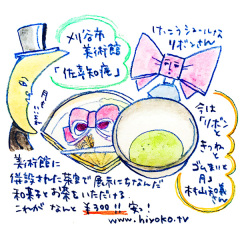 刈谷市
美術館
「佐喜知庵」
月もいいなぁ
けっこうシュールな
リボンさん
今は「リボンと
きつねと
ゴムまりと
月
村山知義
さん」
美術館に
併設された茶室で展示にちなんだ
和菓子とお茶をいただける!
これが なんと ¥300!! 安!
www.hiyoko.tv